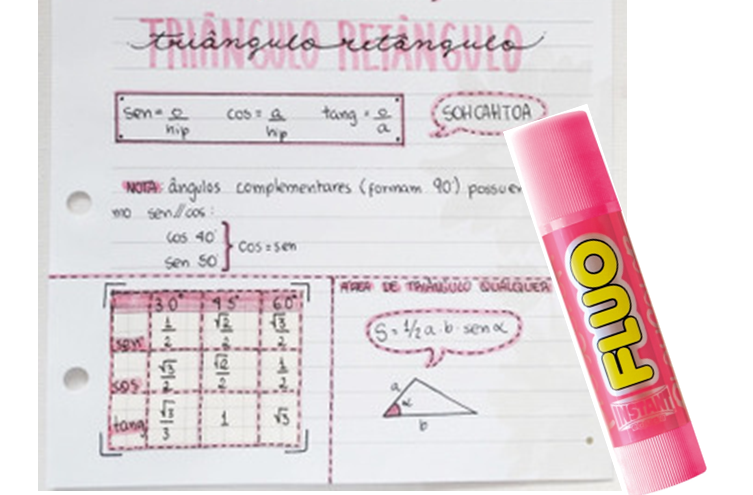 triângulo retângulo
TRIÂNGULO RETÂNGULO
sen = o/hip cos = a/hip tang = o/a
SOHCAHTOA
NOTA: ângulos complementares (formam 90°)
mo sen//cos:
cos 40°
sen 50°
cos = sen
30° 45° 60°
sen 1/2 √2/2 √3/2
cos √3/2 √2/2 1/2
tang √3/3 1 √3
ÁREA DE TRIÂNGULO QUALQUER
S = 1/2 a · b · sen α
a
α
b
FLUO
INSTANT